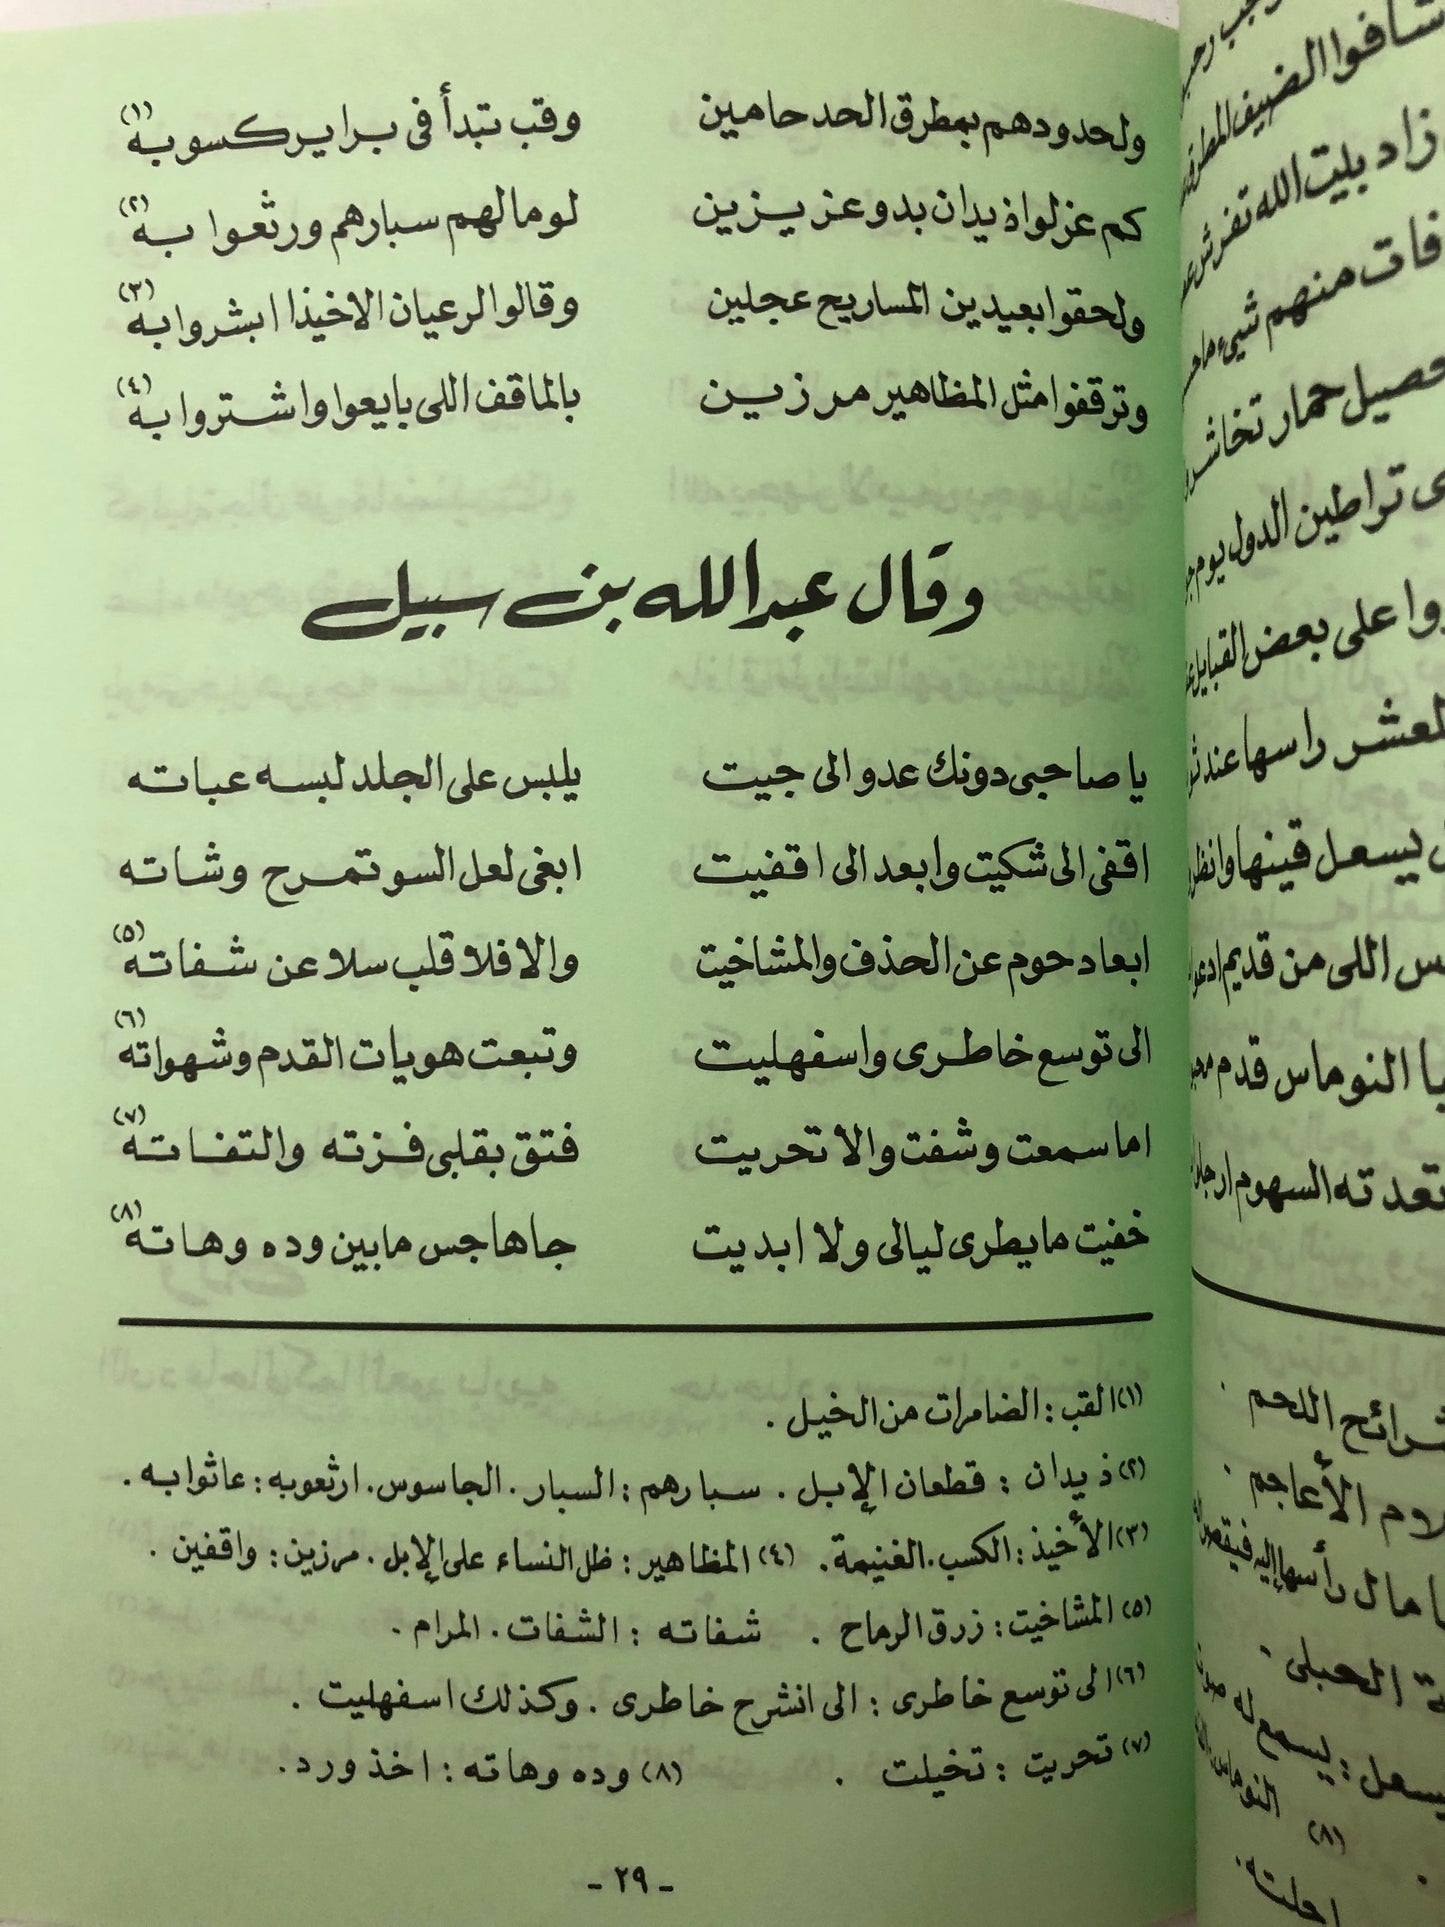 ولحدودهم بمطرق الحد حامين وقب تبدأ فى براير كسوبه (١)
كم عزلوا ذيدان بدو عزيزين لومالهم سبارهم ورثعوا به (٢)
ولحقوا بعيدين المساريح عجلين وقالوا لرعيان الاخيذا ابشروا به (٣)
وترقفوا مثل المظاهير مرزين بالماقف اللى بايعوا واشتروا به (٤)
وقال عبدالله بن سبيل
يا صاحبى دونك عدو الى جيت يلبس على الجلد لبسه عباته
اقفى الى شكيت وابعد الى اقفيت ابغى لعل السو تمرح وشاته
ابعاد حوم عن الحذف والمشاخيت والا فلا قلب سلا عن شفاته (٥)
الى توسع خاطرى واسفهليت وتبعت هويات القدم وشهواته (٦)
اما سمعت وشفت والا تحريت فتق بقلبى فزته والتفاته (٧)
خفيت ما يطرى ليالى ولا ابديت جاها جس مابين وده وهاته (٨)
(١) القب : الضامرات من الخيل .
(٢) ذيدان : قطعان الإبل . سبارهم : السبار . الجاسوس . ارثعوبه : عاثوا به .
(٣) الأخيذ : الكسب . الغنيمة . (٤) المظاهير : ظل النساء على الإبل . مرزين : واقفين .
(٥) المشاخيت : زرق الرماح . شفاته : الشفات . المرام .
(٦) الى توسع خاطرى : الى انشرح خاطرى . وكذلك اسفهليت .
(٧) تحريت : تخيلت . (٨) وده وهاته : اخذ ورد .
- ٢٩ -
شافوا الضيف
زاد بليت الله تفرش
فات منهم شيء
حصيل حمار
تراطين الدول يوم
على بعض القبايل
راسها عند
يسعل قينها وانظر
اللى من قديم
النوماس قدم
السهوم
شرائح اللحم .
الأعاجم .
مال رأسها إليه
الحبلى .
يسعل : يسمع له
(٨) النوماس